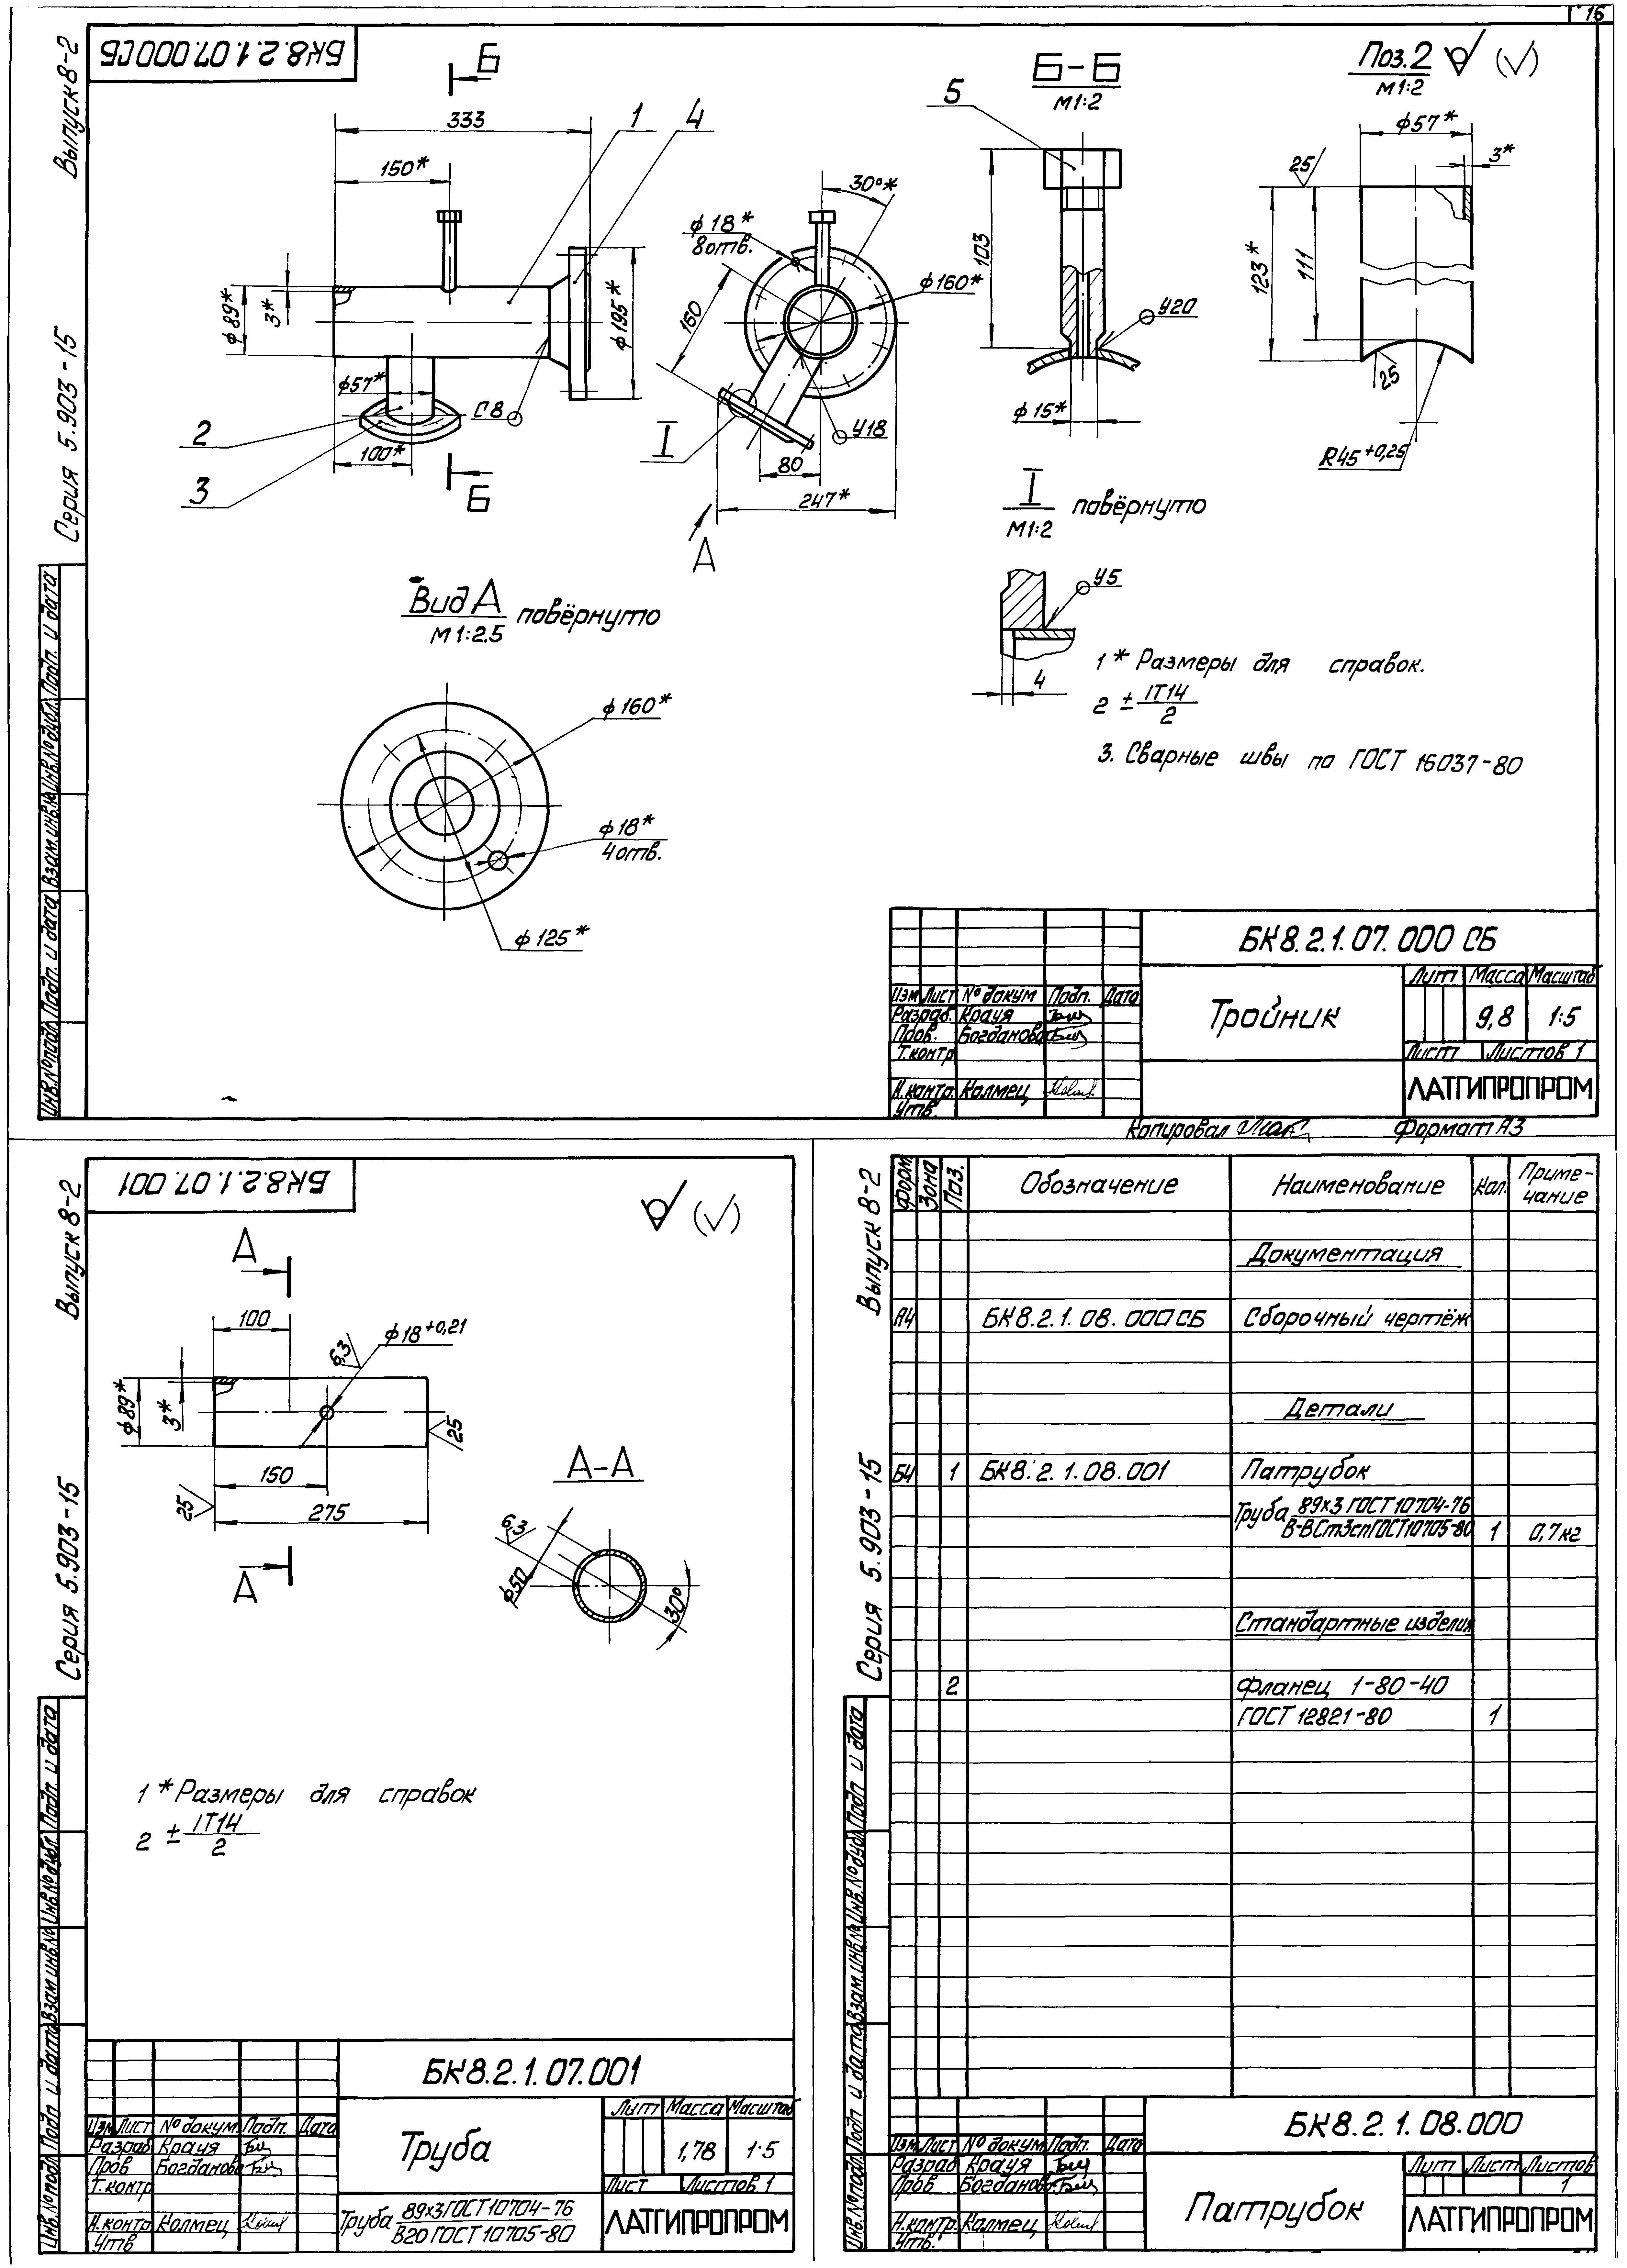 16
БК8.2.1.07.000СБ
Выпуск 8-2
Серия 5.903-15
Б
333
1
4
150*
ϕ89*
3*
ϕ195*
ϕ57*
С8
2
100*
3
Б
30°*
ϕ18*
8отв.
ϕ160*
160
У18
I
80
247*
А
Б-Б
М1:2
5
103
У20
ϕ15*
Поз.2
М1:2
ϕ57*
3*
25
123*
111
25
R45+0,25
I повёрнуто
М1:2
У5
4
Вид А повёрнуто
М1:2.5
ϕ160*
ϕ18*
4отв.
ϕ125*
1 * Размеры для справок.
2 ± IT14/2
3. Сварные швы по ГОСТ 16037-80
Инв.№подл. Подп. и дата Взам.инв.№ Инв.№дубл. Подп. и дата
БК8.2.1.07.000 СБ
Тройник
Лит Масса Масштаб
9,8 1:5
Лист Листов 1
ЛАТГИПРОПРОМ
Изм Лист № докум Подп. Дата
Разраб. Крауя
Пров. Богданова
Т.контр
Н.контр. Колмец
Утв.
Копировал Формат А3
БК8.2.1.07.001
Выпуск 8-2
Серия 5.903-15
А
100
6,3
ϕ18+0,21
ϕ89*
3*
25
150
25
275
А
А-А
6,3
ϕ50
30°
1 * Размеры для справок
2 ± IT14/2
Инв.№подл. Подп и дата Взам.инв.№ Инв.№дубл. Подп. и дата
БК8.2.1.07.001
Труба
Лит Масса Масштаб
1,78 1:5
Лист Листов 1
Труба 89х3 ГОСТ 10704-76
В20 ГОСТ 10705-80
ЛАТГИПРОПРОМ
Изм Лист № докум. Подп. Дата
Разраб Крауя
Пров Богданова
Т.контр
Н.контр Колмец
Утв
Выпуск 8-2
Серия 5.903-15
Форм. Зона Поз. Обозначение Наименование Кол. Приме-
чание
Документация
А4 БК8.2.1.08.000СБ Сборочный чертёж
Детали
Б4 1 БК8.2.1.08.001 Патрубок
Труба 89х3 ГОСТ 10704-76
В-ВСт3сп ГОСТ 10705-80 1 0,7кг
Стандартные изделия
2 Фланец 1-80-40
ГОСТ 12821-80 1
Инв.№подл. Подп и дата Взам.инв.№ Инв.№дубл Подп и дата
БК8.2.1.08.000
Патрубок
Лит Лист Листов
1
ЛАТГИПРОПРОМ
Изм Лист № докум. Подп. Дата
Разраб Крауя
Пров Богданова
Н.контр. Колмец
Утв.